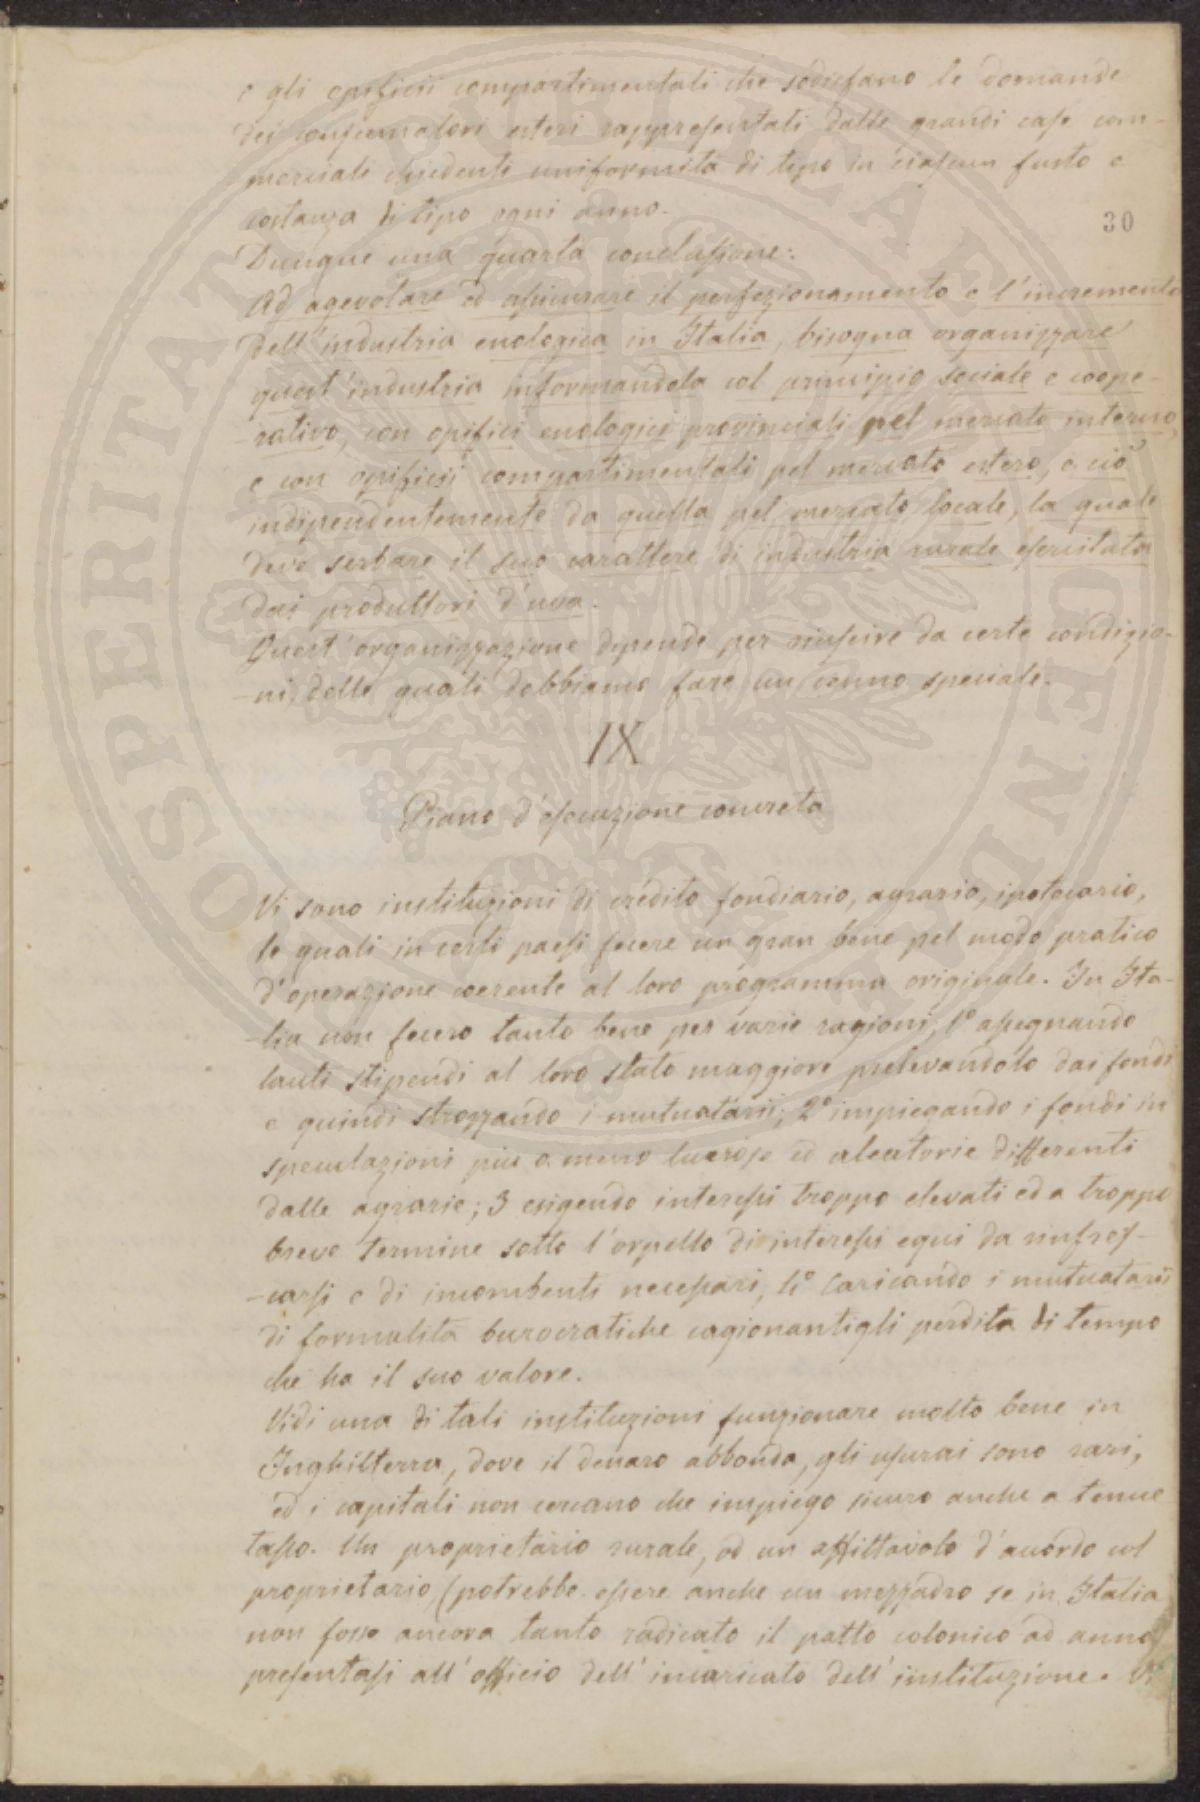 e gli opificii compartimentali che sodisfano le domande
dei consumatori esteri rappresentati dalle grandi case com-
merciali chiedenti uniformità di tipo in ciascun fusto e
costanza di tipo ogni anno.
30
Dunque una quarta conclusione:
Ad agevolare ed assicurare il perfezionamento e l'incremento
dell'industria enologica in Italia, bisogna organizzare
quest'industria informandola col principio sociale e coope-
-rativo, con opifici enologici provinciali pel mercato interno,
e con opificii compartimentali pel mercato estero, e ciò
indipendentemente da quella pel mercato locale, la quale
deve serbare il suo carattere di industria rurale esercitata
dai produttori d'uva.
Quest'organizzazione dipende per riuscire da certe condizio-
-ni, delle quali dobbiamo fare un cenno speciale.
IX
Piano d'esecuzione concreta
Vi sono instituzioni di credito fondiario, agrario, ipotecario,
le quali in certi paesi fecere un gran bene pel modo pratico
d'operazione coerente al loro programma originale. In Ita-
-lia non fecero tanto bene per varie ragioni, 1° assegnando
lauti stipendi al loro stato maggiore prelevandolo dai fondi
e quindi strozzando i mutuatarii; 2° impiegando i fondi in
speculazioni più o meno lucrose ed aleatorie differenti
dalle agrarie; 3 esigendo interessi troppo elevati ed a troppo
breve termine sotto l'orpello di interessi equi da rinfres-
-carsi e di incombenti necessari; 4° caricando i mutuatarii
di formalità burocratiche cagionantigli perdita di tempo
che ha il suo valore.
Vidi una di tali instituzioni funzionare molto bene in
Inghilterra, dove il denaro abbonda, gli usurai sono rari,
ed i capitali non cercano che impiego sicuro anche a tenue
tasso. Un proprietario rurale, od un affittavolo d'accordo col
proprietario, (potrebbe essere anche un mezzadro se in Italia
non fosse ancora tanto radicato il patto colonico ad anno)
presentasi all'officio dell'incaricato dell'instituzione. Vi
PROSPERITATI PUBLICAE AUGENDAE